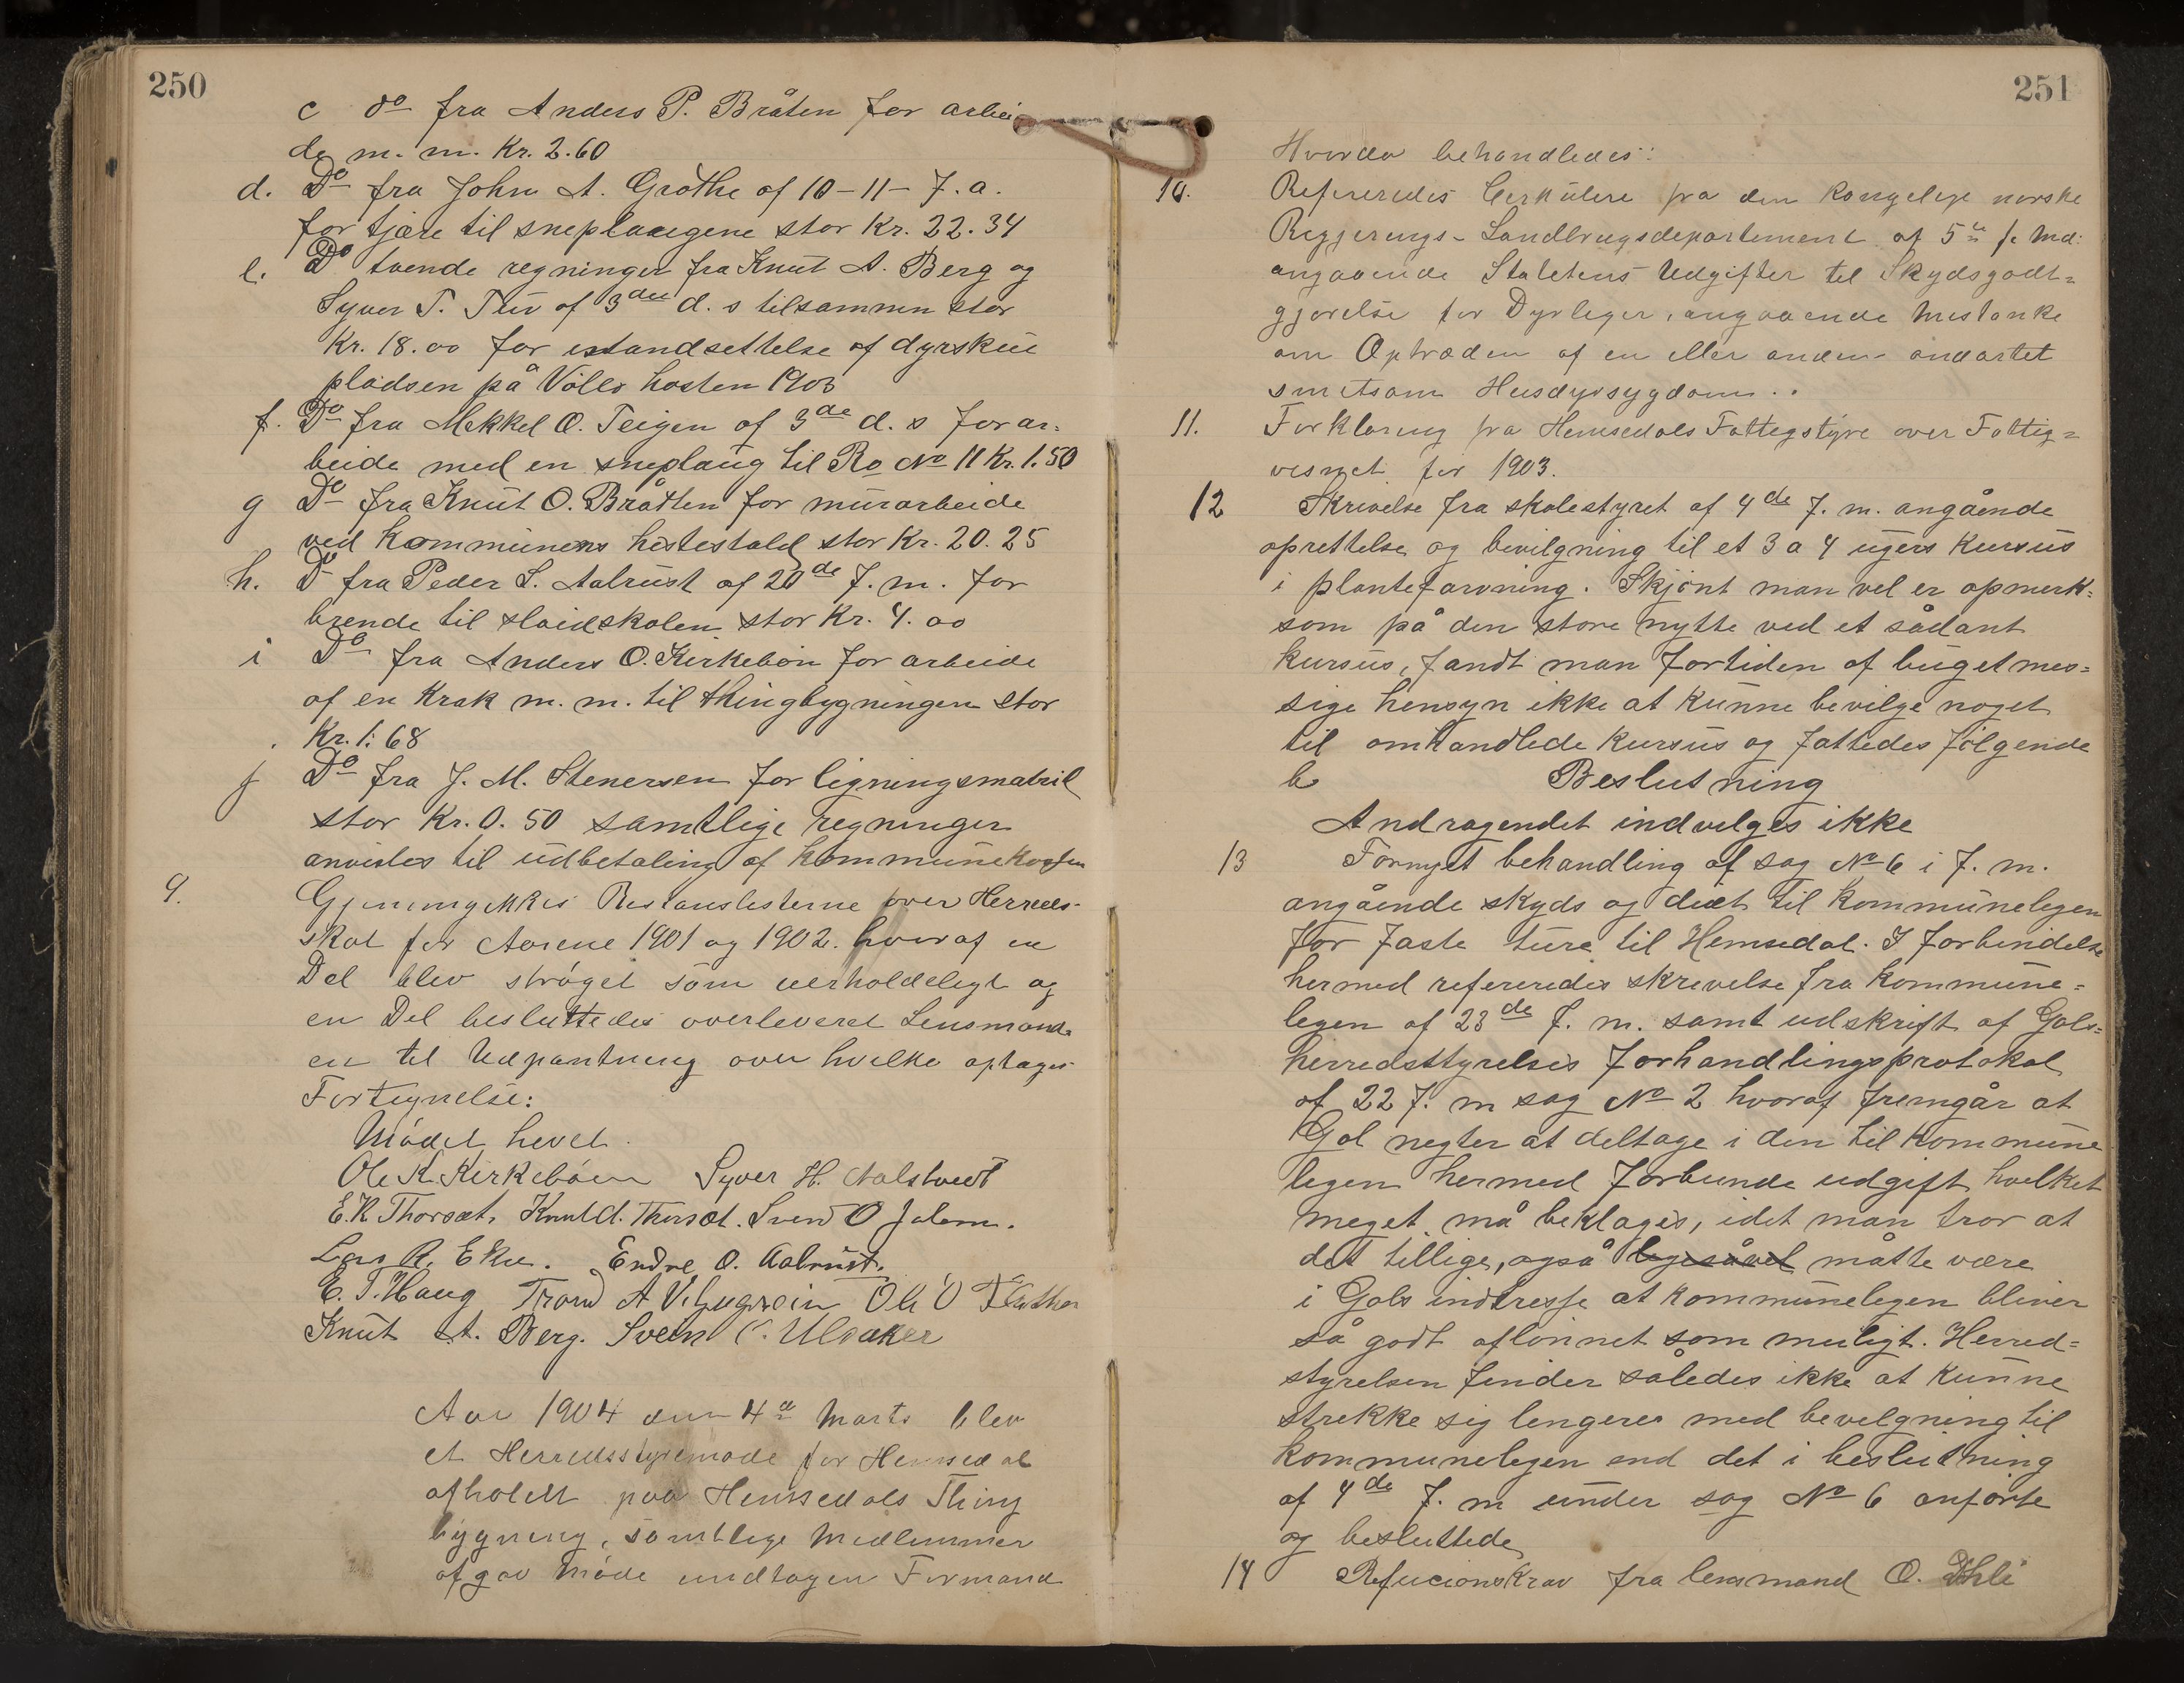 250
c do fra Anders P. Bråten for arbei
de m. m. Kr. 2.60
d. Do fra John A. Grøthe af 10-11- f. a.
for tjære til sneplaugene stor Kr. 22.34
e. Do tvende regninger fra Knut A. Berg og
Syver T. Tuv af 3die d. s tilsammen stor
Kr. 18.00 for istandsettelse af dyrskue
pladsen på Volls høsten 1903
f. Do fra Mekkel O. Teigen af 3de d. s for ar=
beide med en sneplaug til Ro No 11 Kr. 1.50
g Do fra Knut O. Bråtten for murarbeide
ved Kommunens hestestald stor Kr. 20.25
h. Do fra Peder S. Aalrust af 20de f. m. for
brende til sløidskolen stor Kr. 4.00
i Do fra Anders O. Kirkebøn for arbeide
af en Krak m. m. til thingbygningen stor
Kr. 1.68
j Do fra J. M. Stenersen for ligningsmatril
stor Kr. 0.50 samtlige regninger
anvistes til udbetaling af kommunekassen
9. Gjennemgikkes Restanslisterne over Herreds-
skat for Aarene 1901 og 1902. hvoraf en
Del blev strøget som uerholdeligt og
en Del besluttedes overleveret Lensmand-
en til Udpantning over hvilke optages
Fortegnelse:
Mødet hevet.
Ole K. Kirkebøen Syver H.
E. K. Thorset, Knut d. Thorset. Svend O Jalem.
Lars R. Eku. Endre O. Aalrust.
E. T. Haug Trond A Ole O Fläthen
Knut A. Berg. Svein Ulsaker
Aar 1904 den 4de Marts blev
et Herredsstyremøde for Hemsedal
afholdt paa Hemsedals Thing
bygning, samtlige Medlemmer
afgav Møde undtagen Formand
251
Hvorda behandledes:
10. Refereredes Cerkulere fra den kongelige norske
Regjerings-Landbrugsdepartement af 5te f. Md:
angaaende Statens Udgifter til Skydsgodt=
gjørelse for Dyrleger, angaaende Mistanke
om Optræden af en eller anden ondartet
smitsom Husdyrsygdom..
11. Forklaring fra Hemsedals Fattigstyre over Fattig=
vesnet for 1903.
12 Skrivelse fra skolestyret af 4de f. m. angående
oprettelse og bevilgning til et 3 a 4 ugers Kursus
i plantefarvning. Skjønt man vel er opmerk=
som på den store nytte ved et sådant
kursus, fandt man fortiden af bugetmes=
sige hensyn ikke at kunne bevilge noget
til omhandlede kursus og fattedes følgende
b Beslutning
Andragendet indvilges ikke
13 Fornyet behandling af sag No 6 i f. m.
angående skyds og diæt til kommunelegen
for faste ture til Hemsedal. I forbindelse
hermed refereredes skrivelse fra kommune=
legen af 23de f. m. samt udskrift af Gols=
herredsstyrelses forhandlingsprotokol
af 22 f. m sag No 2 hvoraf fremgår at
Gol negter at deltage i den til kommune
legen hermed forbunde udgift, hvilket
meget må beklages, idet man tror at
det tillige, også ligesåvel måtte være
i Gols indtresse at kommunelegen bliver
så godt aflønnet som muligt. Herred=
styrelsen finder således ikke at kunne
strekke sig lengere med bevilgning til
kommunelegen end det i beslutning
af 4de f. m under sag No 6 anførte
og besluttede
14 Refucionskrav fra lensmand O. Dhli